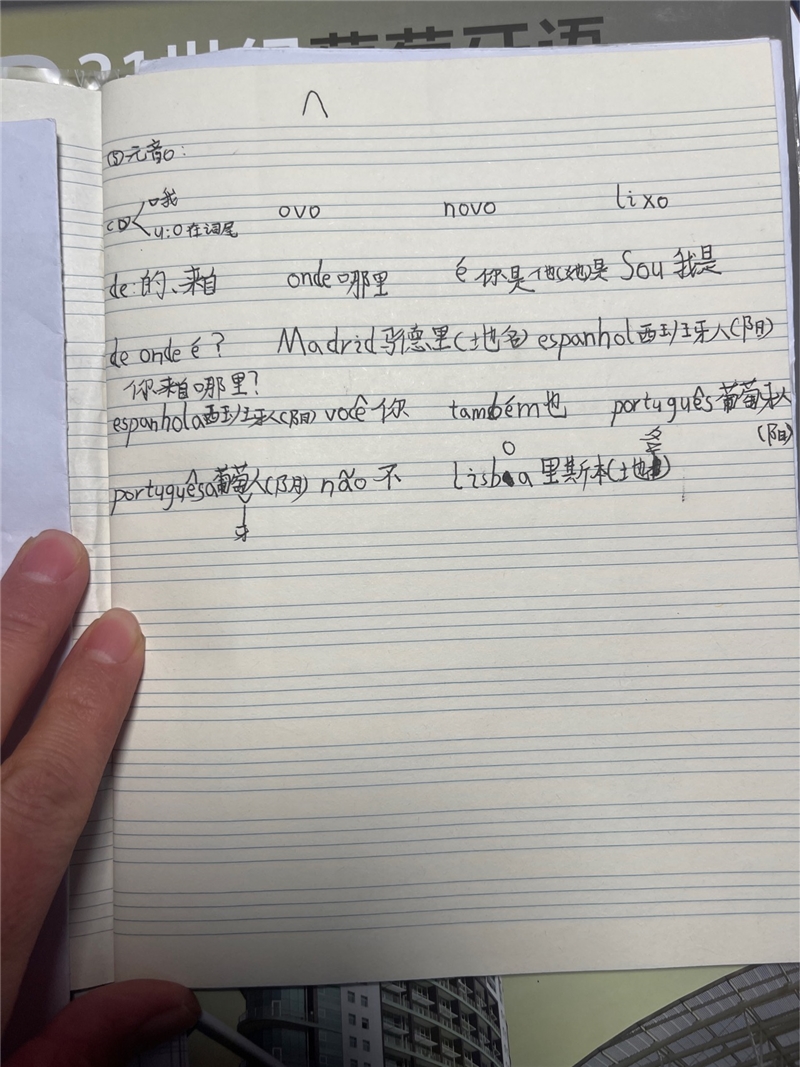 21世纪葡萄牙语
^
⑤元音o:
o我
ovo novo lixo
u:o在词尾
de:的、来自 onde哪里 é你是他(她)是 Sou我是
de onde é? Madrid马德里(地名) espanhol西班牙人(阳)
你来自哪里?
espanhola西班牙人(阴) você你 também也 português葡萄牙人
(阳)
o 名
portuguêsa葡萄人(阴) não不 lisba里斯本(地)
牙